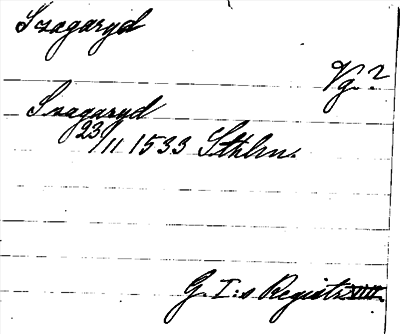 Szagaryd
Vg. ?
Szagaryd
23/11 1533 Sthlm.
G. I:s Registr.